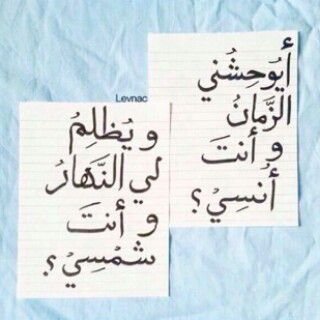 أيُوحِشُني
الزَّمانُ
و أنتَ
أُنسِيْ؟
Levnac
و يُظلِمُ
لي النَّهارُ
و أنتَ
شَمْسِيْ؟